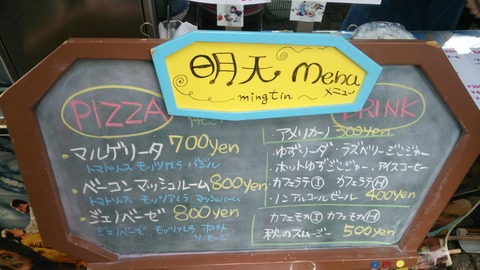 明天 Menu
mingtin メニュー
PIZZA
・マルゲリータ 700yen
トマトソース モッツァレラ バジル
・ベーコンマッシュルーム 800yen
トマトソース モッツァレラ マッシュルーム
・ジェノベーゼ 800yen
ジェノベーゼ モッツァレラ ポテト
ソーセージ
DRINK
アメリカーノ 300yen
ゆずソーダ・ラズベリーじんじゃー
ホットゆずじんじゃー・アイスコーヒー
カフェラテⒾ カフェラテⒽ
ノンアルコールビール 400yen
カフェモカⒾ カフェモカⒽ
秋のスムージー 500yen